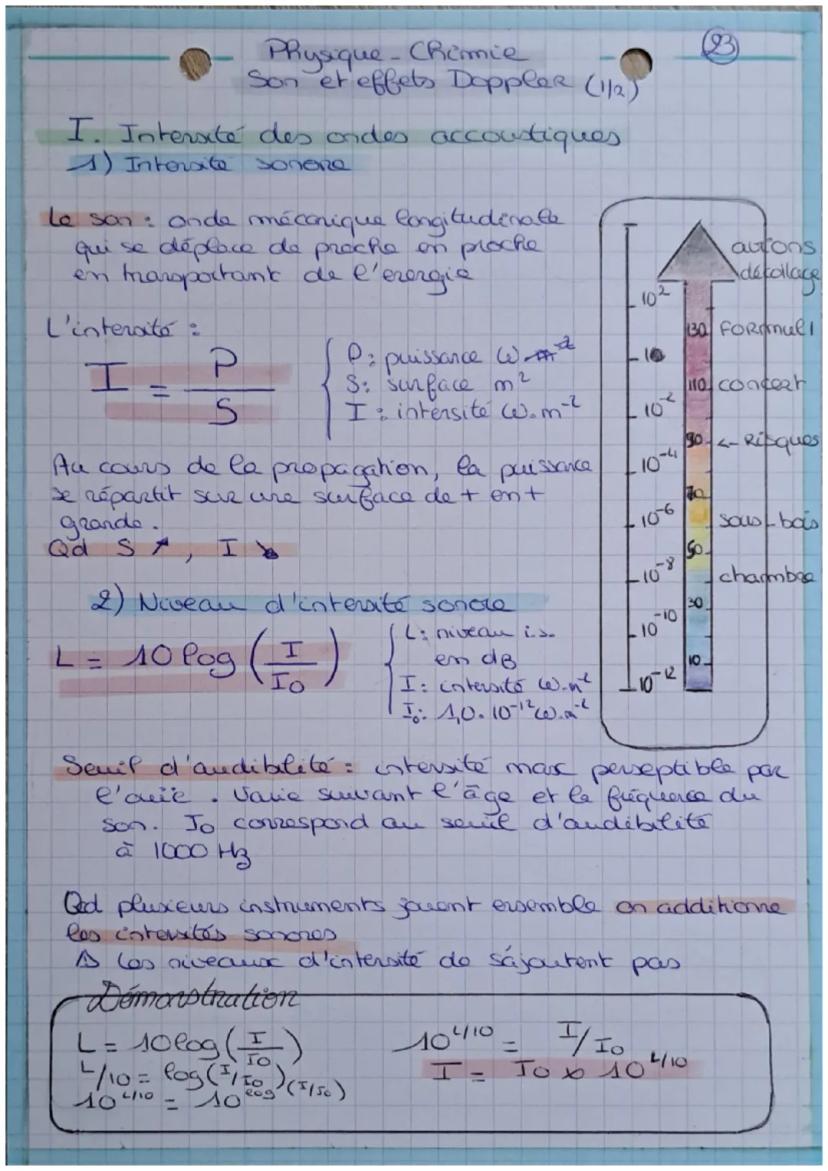 Physique - Chimie
Son et effets Doppler (1/2)
23
I. Intensité des ondes accoustiques
1) Intensité sonore
Le son : onde mécanique longitudinale
qui se déplace de proche en proche
en transportant de l'energie
L'intensité :
I = P / S
P : puissance W
S : surface m²
I : intensité W.m⁻²
Au cours de la propagation, la puissance
se répartit sur une surface de + en +
grande.
Qd S ↗, I ↘
avions
décollage
10²
130 Formul1
10
110 concert
10⁻²
90 ← Risques
10⁻⁴
70
10⁻⁶
sous-bois
50
10⁻⁸
chambre
30
10⁻¹⁰
10
10⁻¹²
2) Niveau d'intensité sonore
L = 10 log (I / I₀)
L : niveau i.s.
en dB
I : intensité W.m⁻²
I₀ : 1,0.10⁻¹² W.m⁻²
Seuil d'audibilité : intensité max perseptible par
l'ouïe. Varie suivant l'âge et la fréquence du
son. I₀ correspond au seuil d'audibilité
à 1000 Hz
Qd plusieurs instruments jouent ensemble on additionne
les intensités sonores
⚠ Les niveaux d'intensité de s'ajoutent pas
Démonstration
L = 10 log (I / I₀)
L/10 = log (I/I₀)
10^(L/10) = 10^(log (I/I₀))
10^(L/10) = I/I₀
I = I₀ x 10^(L/10)